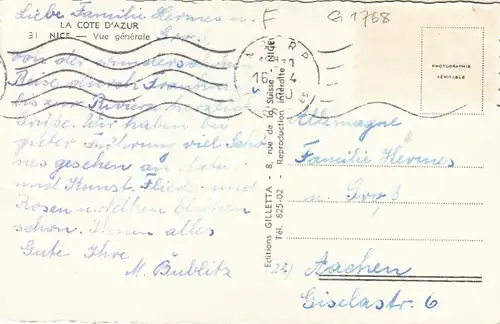 Liebe Familie Hermes u.
Groß.
LA COTE D'AZUR
31 NICE — Vue générale
von der
Reise durch Frankreich
bis zur Riviera herzliche
Grüße. Wir haben bei
guter Führung viel Schö-
nes gesehen an Natur
und Kunst. Flieder und
Rosen u. Nelken blühen
schon. Ihnen alles
Gute Ihre
M. Bublitz
F
G 1768
16
4
PHOTOGRAPHIE
VÉRITABLE
Editions GILLETTA - 8, rue de la Suisse - NICE
Tél. 825-02 - Reproduction interdite
Allemagne
Familie Hermes
u. Groß
(22) Aachen
Giselastr. 6